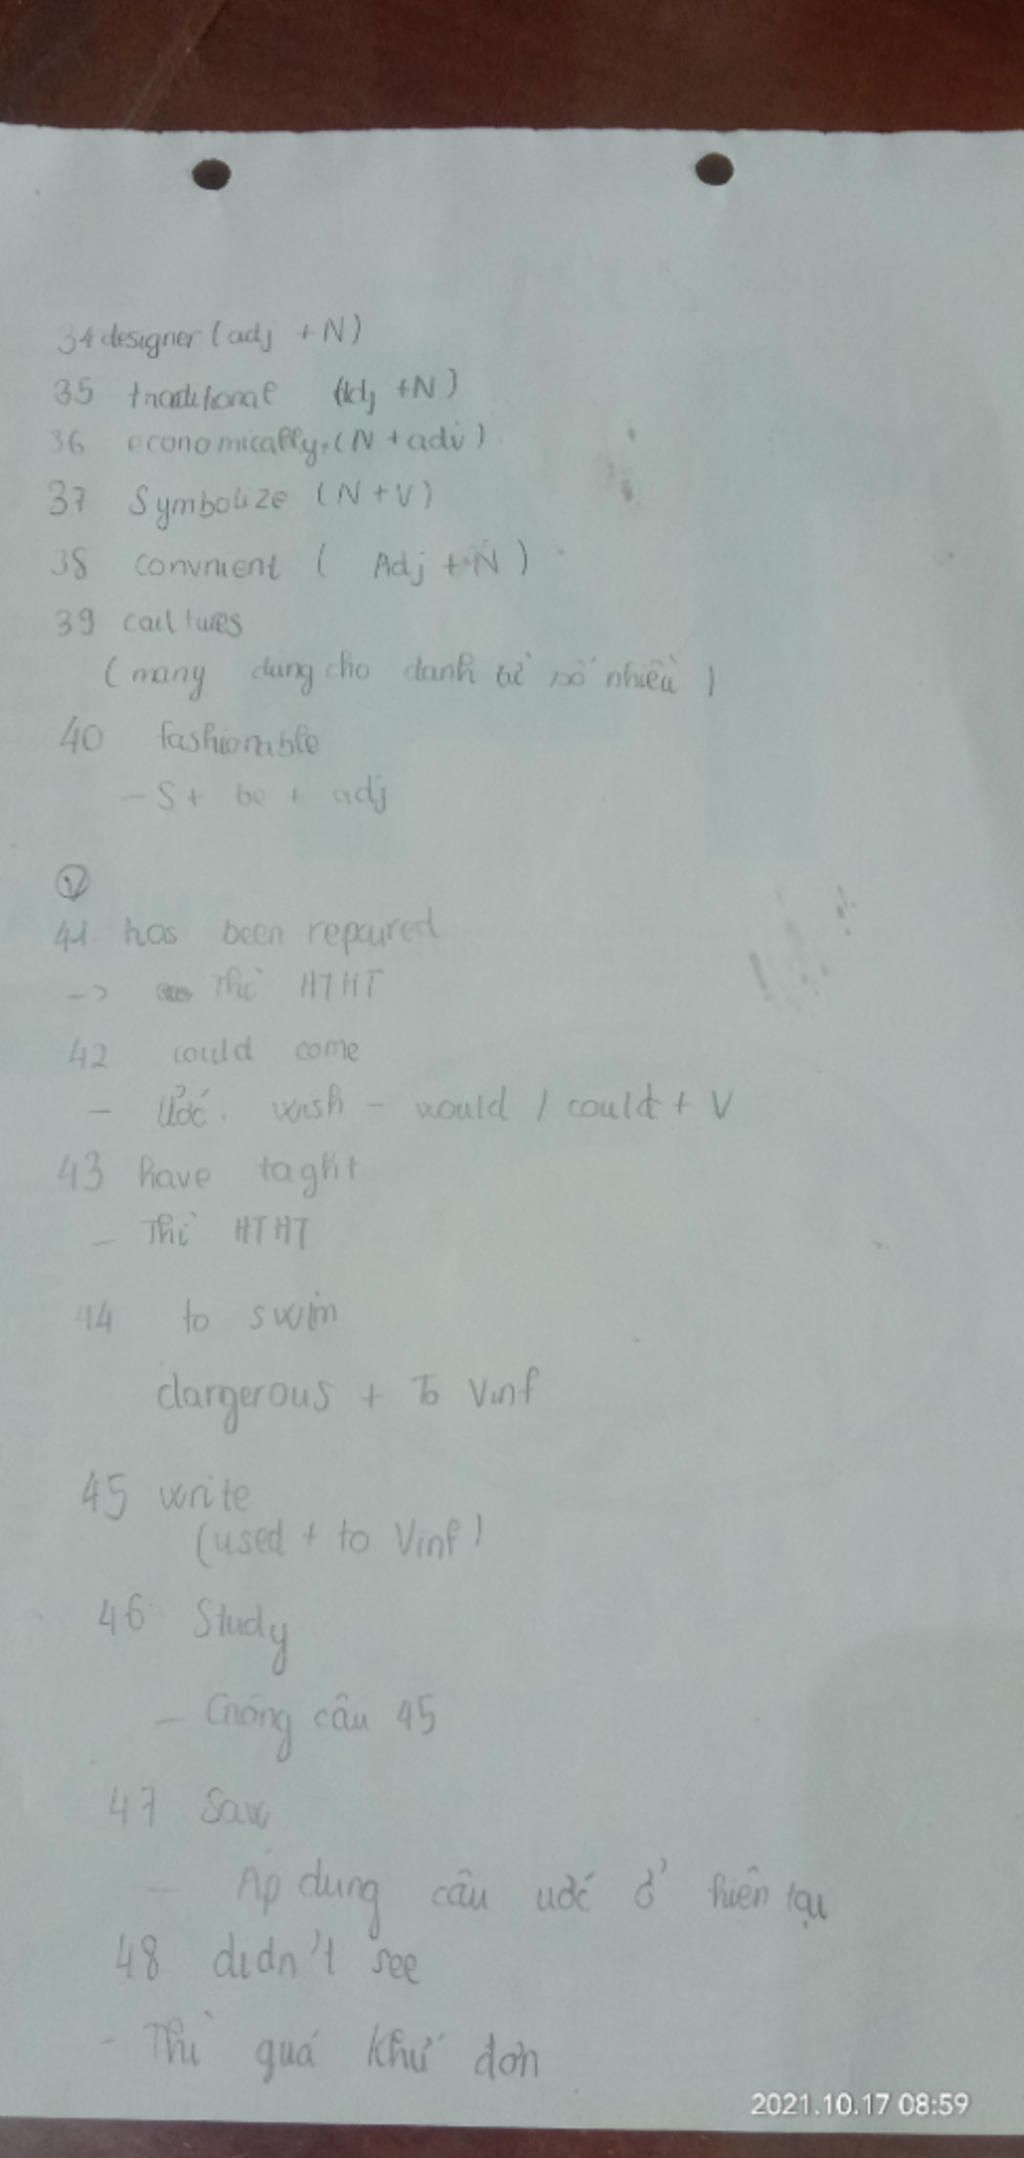 34 designer (adj + N)
35 traditional (Adj + N)
36 economically, (N + adv)
37 Symbolize (N + V)
38 convnient ( Adj + N )
39 cultures
(many dùng cho danh từ số nhiều )
40 fashionable
- S + be + adj
V
41. has been repaired
-> Thì HTHT
42 could come
- Ước. wish - would / could + V
43 have taght
- Thì HTHT
44 to swim
dangerous + To Vinf
45 write
(used + to Vinf)
46 Study
- Giống câu 45
47 Saw
- Áp dụng câu ước ở hiện tại
48 didn't see
- Thì quá khứ đơn
2021.10.17 08:59